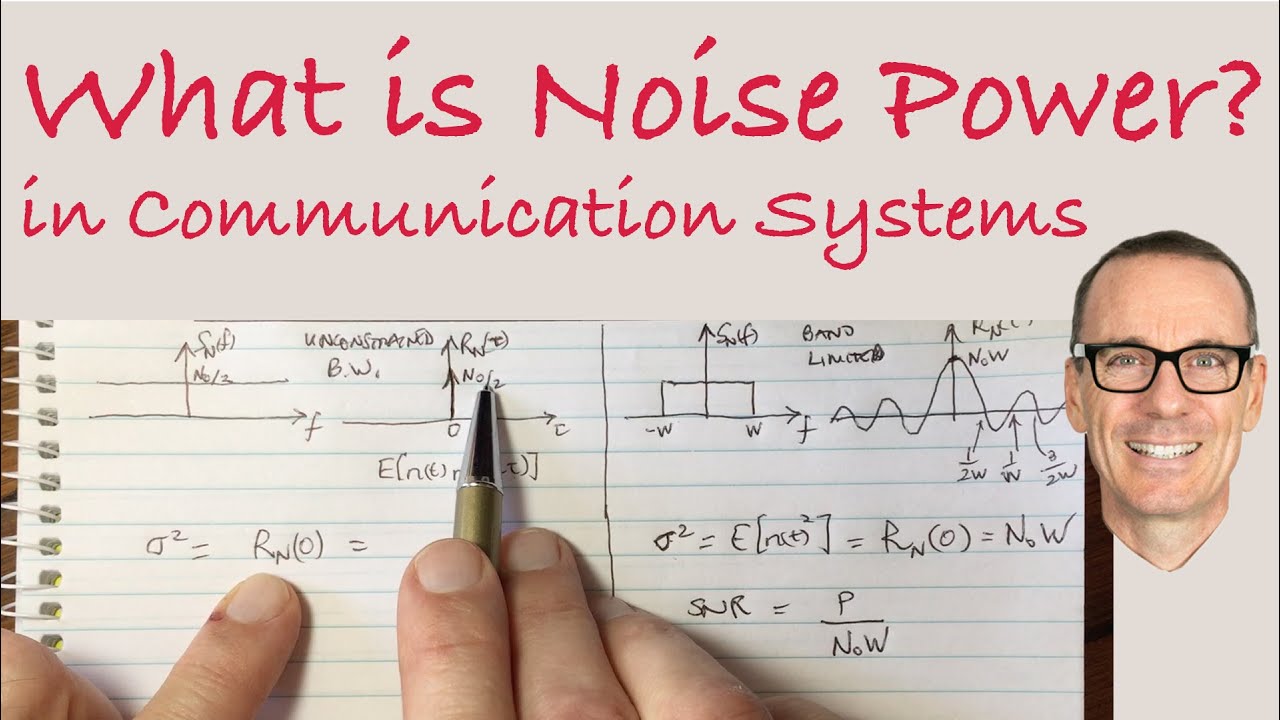 What is Noise Power?
in Communication Systems
Sₙ(f)
N₀/2
f
UNCONSTRAINED
B.W.
Rₙ(τ)
N₀/2
0
τ
E[n(t) n -τ)]
σ² = Rₙ(0) =
Sₙ(f)
-W
W
f
BAND
LIMITED
N₀W
1/2W
1/W
3/2W
σ² = E[n(t)²] = Rₙ(0) = N₀W
SNR = P/N₀W